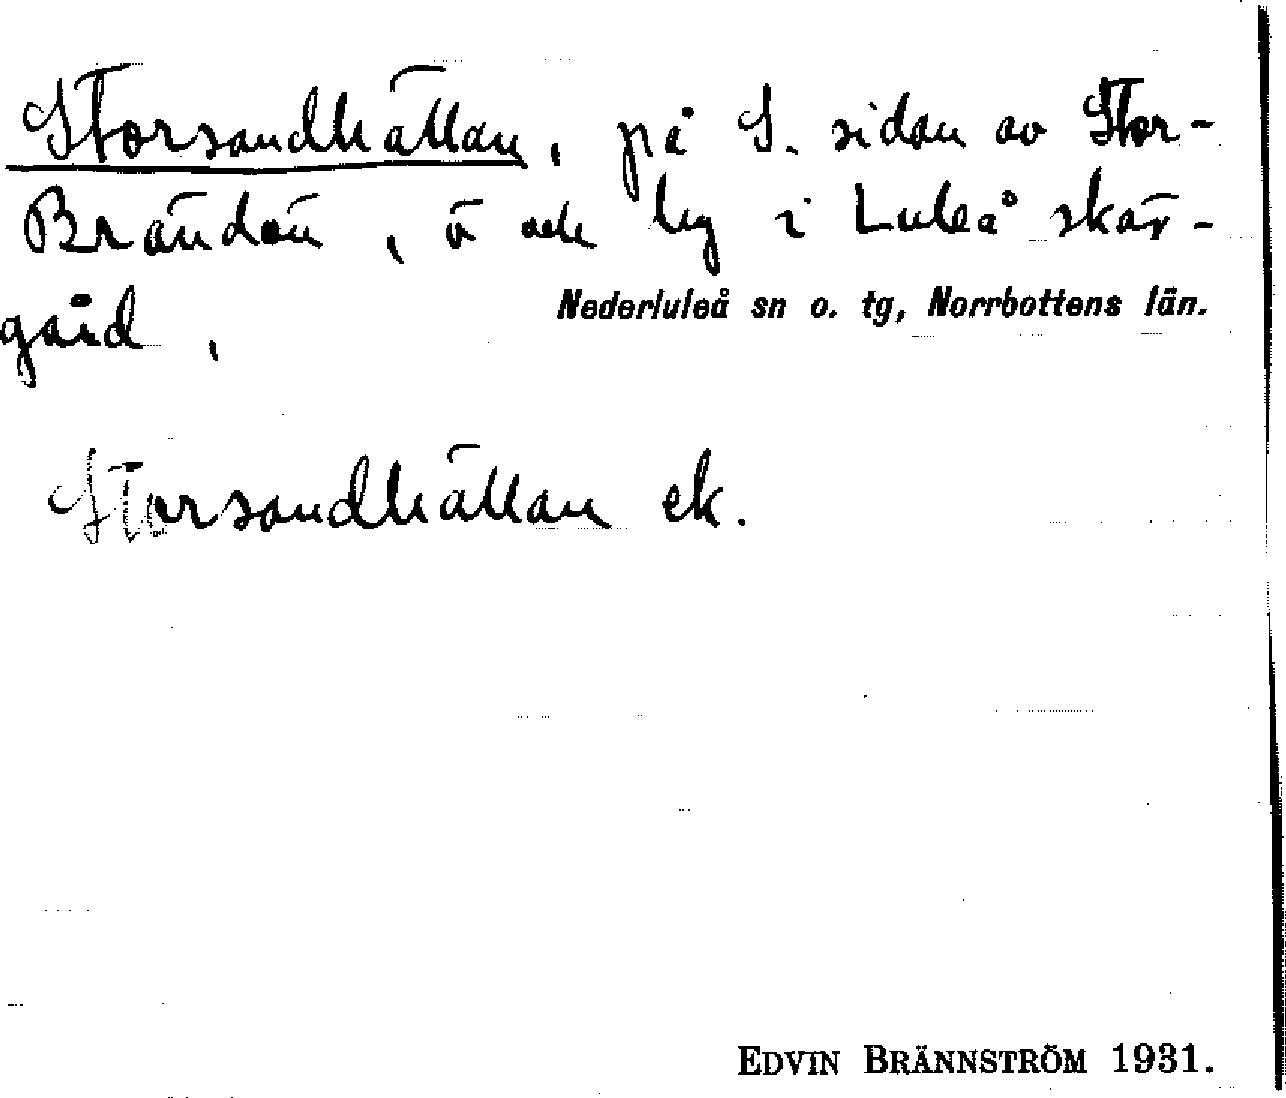 Storsandhällan, på S. sidan av Stor-
Brändön, ö och by i Luleå skär-
gård.
Nederluleå sn o. tg, Norrbottens län.
Storsandhällan ek.
EDVIN BRÄNNSTRÖM 1931.